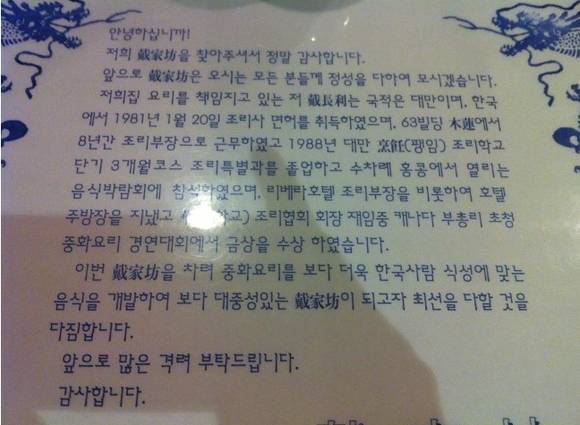 안녕하십니까!
저희 戴家坊을 찾아주셔서 정말 감사합니다.
앞으로 戴家坊은 오시는 모든 분들께 정성을 다하여 모시겠습니다.
저희집 요리를 책임지고 있는 저 戴長利는 국적은 대만이며, 한국
에서 1981년 1월 20일 조리사 면허를 취득하였으며, 63빌딩 木蓮에서
8년간 조리부장으로 근무하였고 1988년 대만 烹飪(팽임) 조리학교
단기 3개월코스 조리특별과를 졸업하고 수차례 홍콩에서 열리는
음식박람회에 참석하였으며, 리베라호텔 조리부장을 비롯하여 호텔
주방장을 지냈고 조리협회 회장 재임중 캐나다 부총리 초청
중화요리 경연대회에서 금상을 수상 하였습니다.
이번 戴家坊을 차려 중화요리를 보다 더욱 한국사람 식성에 맞는
음식을 개발하여 보다 대중성있는 戴家坊이 되고자 최선을 다할 것을
다짐합니다.
앞으로 많은 격려 부탁드립니다.
감사합니다.